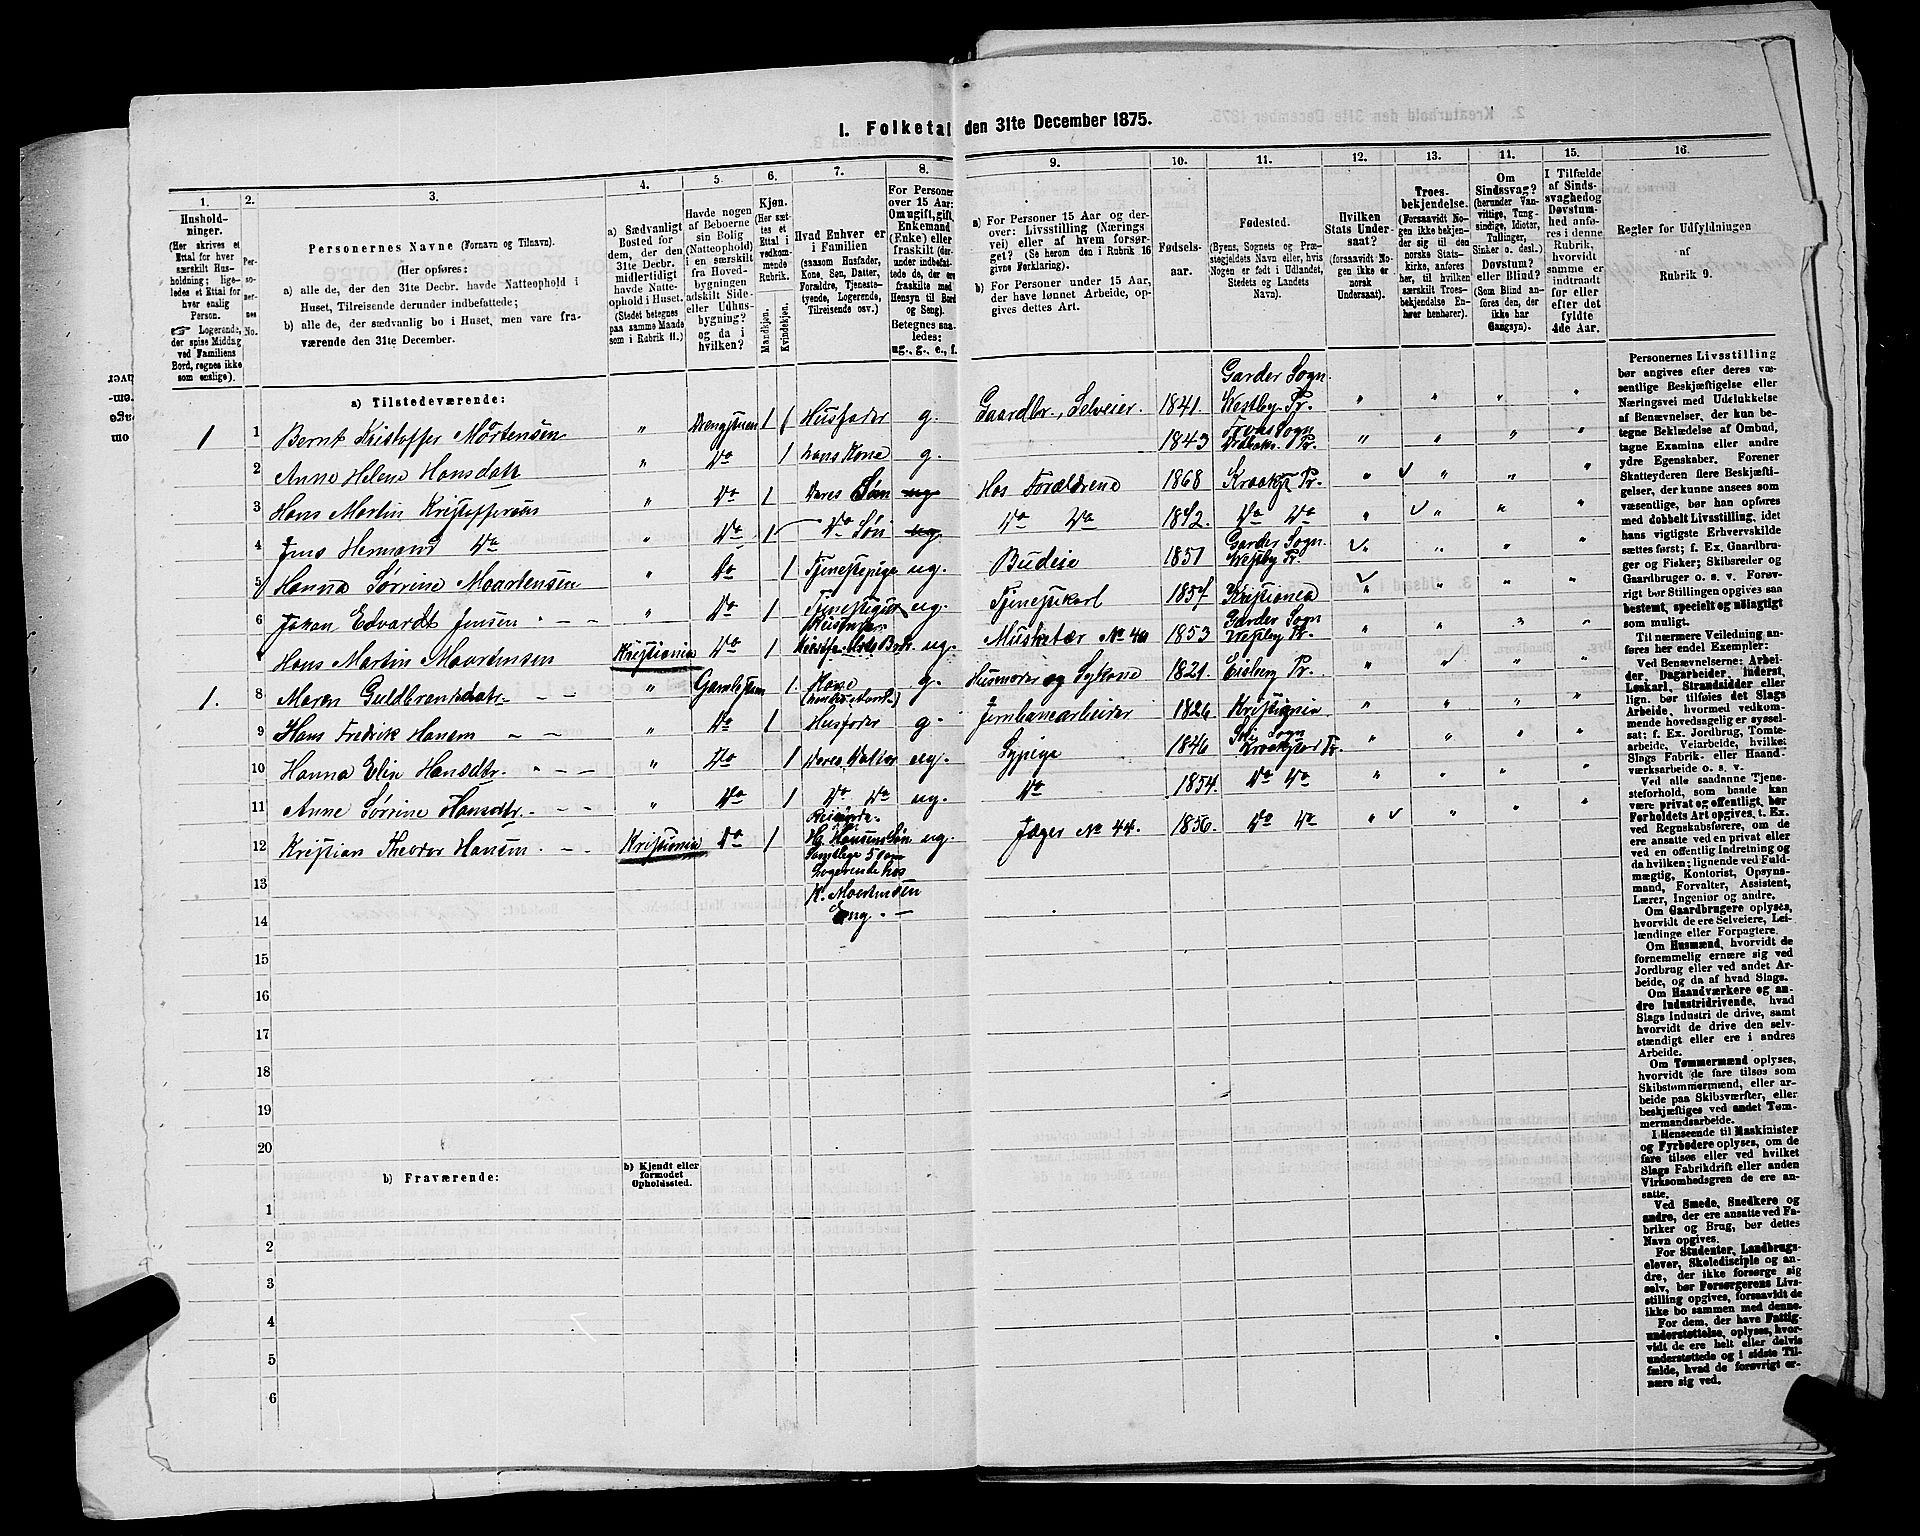 1. Folketal den 31te December 1875.
1. 2. 3. 4. 5. 6. 7. 8. 9. 10. 11. 12. 13. 14. 15. 16.
Hushold-
ninger.
(Her skrives et
Ettal for hver
særskilt Hus-
holdning; lige-
ledes et Ettal for
hver enslig
Person.
☞ Logerende,
der spise Middag
ved Familiens
Bord, regnes ikke
som enslige).
Per-
so-
ner-
nes
No.
Personernes Navne (Fornavn og Tilnavn).
(Her opføres:
a) alle de, der den 31te Decbr. havde Natteophold i
Huset, Tilreisende derunder indbefattede;
b) alle de, der sædvanlig bo i Huset, men vare fra-
værende den 31te December.
a) Sædvanligt
Bosted for
dem, der den
31te Decbr.
midlertidigt
havde Natte-
ophold i Huset.
(Stedet betegnes
paa samme Maade
som i Rubrik 11.)
Havde nogen
af Beboerne
sin Bolig
(Natteophold)
i en særskilt
fra Hoved-
bygningen
adskilt Side-
eller Udhus-
bygning?
og da i
hvilken?
Kjøn.
(Her sæt-
tes et
Ettal i
vedkom-
mende
Rubrik.
Mandkjøn.
Kvindekjøn.
Hvad Enhver er
i Familien
(saasom Husfader,
Kone, Søn, Datter,
Forældre, Tjeneste-
tyende, Logerende,
Tilreisende osv.)
For Personer
over 15 Aar:
Om ugift, gift,
Enkemand
(Enke) eller
fraskilt (der-
under indbefat-
tede de, der ere
fraskilte med
Hensyn til Bord
og Seng).
Betegnes saa-
ledes:
ug., g., e., f.
a) For Personer 15 Aar og der-
over: Livsstilling (Nærings
vei) eller af hvem forsør-
get? (Se herom den i Rubrik 16
givne Forklaring).
b) For Personer under 15 Aar,
der have lønnet Arbeide, op-
gives dettes Art.
Fødsels-
aar.
Fødested.
(Byens, Sognets og Præ-
stegjeldets Navn eller, hvis
Nogen er født i Udlandet,
Stedets og Landets
Navn).
Hvilken
Stats Under-
saat?
(forsaavidt No-
gen ikke er
norsk
Undersaat).
Troes-
bekjendelse.
(Forsaavidt No-
gen ikke bekjen-
der sig til den
norske Stats-
kirke, anføres
her, til hvilken
særskilt Troes-
bekjendelse En-
hver henhører).
Om
Sindssvag?
(herunder Van-
vittige, Tung-
sindige, Idioter,
Tullinger,
Sinker o. desl.)
Døvstum?
eller Blind?
(Som Blind an-
føres den, der
ikke har
Gangsyn).
I Tilfælde
af Sinds-
svaghed og
Døvstum-
hed anfø-
res i denne
Rubrik,
hvorvidt
samme er
indtraadt
før eller
efter det
fyldte
4de Aar.
Regler for Udfyldningen
af
Rubrik 9.
a) Tilstedeværende:
1 1 Bernt Kristoffer Mortensen " Drengestuen 1 Husfader g. Gaardbr., Selveier. 1841. Garder Sogn. Westby Pr. " " " "
2 Anne Helene Hansdatt " Do 1 hans Kone g. 1843 " " " "
3 Hans Martin Kristoffersen " Do 1 Deres Søn ug Hos Forældrene 1868 Pr. " " " "
4 Jens Hermand Do " Do 1 Do Søn ug. Do Do 1872. Do Do " " " "
5 Hanna Sørrine Moartensen " Do 1 Tjenestepige ug. Budeie 1851 Garder Sogn Westby Pr. " " " "
6 Johan Edvardt Jensen " Do 1 ug. Tjenestkarl 1857 Kristiania " " " "
7 Hans Martin Moartensen Kristiania Do 1 ug. Musketær No 1853 Garder Sogn Westby Pr. " " " "
1. 8 Maren Guldbrantsdatr. " 1. Kone g. Husmoder og Sykone 1821. Pr. " " " "
9 Hans Fredrik Hansen " Do 1 Husfader g. Jernbanearbeider 1826 Kristiania " " " "
10 Hanna Elin Hansdtr. " Do 1 Deres Datter ug. Sypige 1846 Ski Sogn Pr. " " " "
11 Anne Sørrine Hansdtr. " Do 1 Do Do ug. Do 1854. Do Do " " " "
12 Kristian Theodor Hansen Kristiania Do 1 Hansens Søn ug. Jæger No 44. 1856. Do Do " " " "
Samtlige 5
Logerende hos
K. Moartensen
Eng.
13
14
15
16
17
18
19
20
b) Fraværende:
b) Kjendt eller
formodet
Opholdssted.
1
2
3
4
5
6
Personernes Livsstilling
bør angives efter deres væ-
sentlige Beskjæftigelse eller
Næringsvei med Udelukkelse
af Benævnelser, der kun be-
tegne Beklædelse af Ombud,
tagne Examina eller andre
ydre Egenskaber. Forener
Skatteyderen flere Beskjæfti-
gelser, der kunne ansees som
væsentlige, bør han opføres
med dobbelt Livsstilling, idet
hans vigtigste Erhvervskilde
sættes først; f. Ex. Gaardbru-
ger og Fisker; Skibsreder og
Gaardbruger o. s. v. Forøv-
rigt bør Stillingen opgives saa
bestemt, specielt og nøiagtigt
som muligt.
Til nærmere Veiledning an-
føres her endel Exempler:
Ved Benævnelserne: Arbei-
der, Dagarbeider, Inderst,
Løskarl, Strandsidder eller
lign. bør tilføies det Slags
Arbeide, hvormed vedkom-
mende hovedsagelig er syssel-
sat; f. Ex. Jordbrug, Tomte-
arbeide, Veiarbeide, hvilket
Slags Fabrik- eller Haand-
værksarbeide o. s. v.
Ved alle saadanne Tjene-
steforhold, som baade kan
være privat og offentligt, bør
Forholdets Art opgives, t. Ex.
ved Regnskabsførere, om de
ere ansatte ved en privat eller
ved en offentlig Indretning og
da hvilken; lignende ved Fuld-
mægtig, Kontorist, Opsyns-
mand, Forvalter, Assistent,
Lærer, Ingeniør og andre.
Om Gaardbrugere oplyses,
hvorvidt de ere Selveiere, Lei-
lændinge eller Forpagtere.
Om Husmænd, hvorvidt de
fornemmelig ernære sig ved
Jordbrug eller ved andet Ar-
beide, og da af hvad Slags.
Om Haandværkere og an-
dre Industridrivende, hvad
Slags Industri de drive, samt
hvorvidt de drive den selv-
stændigt eller ere i andres
Arbeide.
Om Tømmermænd oplyses,
hvorvidt de fare tilsøs som
Skibstømmermænd, eller ar-
beide paa Skibsværfter, eller
beskjæftiges ved andet Tøm-
mermandsarbeide.
I Henseende til Maskinister
og Fyrbødere oplyses, om de
fare tilsøs eller ved hvilket
Slags Fabrikdrift eller anden
Virksomhedsgren de ere an-
satte.
Ved Smede, Snedkere og
andre, der ere ansatte ved Fa-
briker og Brug, bør dettes
Navn opgives.
For Studenter, Landbrugs-
elever, Skoledisciple og an-
dre, der ikke forsørge sig
selv, bør Forsørgerens Livs-
stilling opgives, forsaavidt de
ikke bo sammen med denne.
For dem, der have Fattig-
understøttelse, oplyses, hvor-
vidt de ere helt eller delvis
understøttede og i sidste Til-
fælde, hvad de forøvrigt er-
nære sig ved.